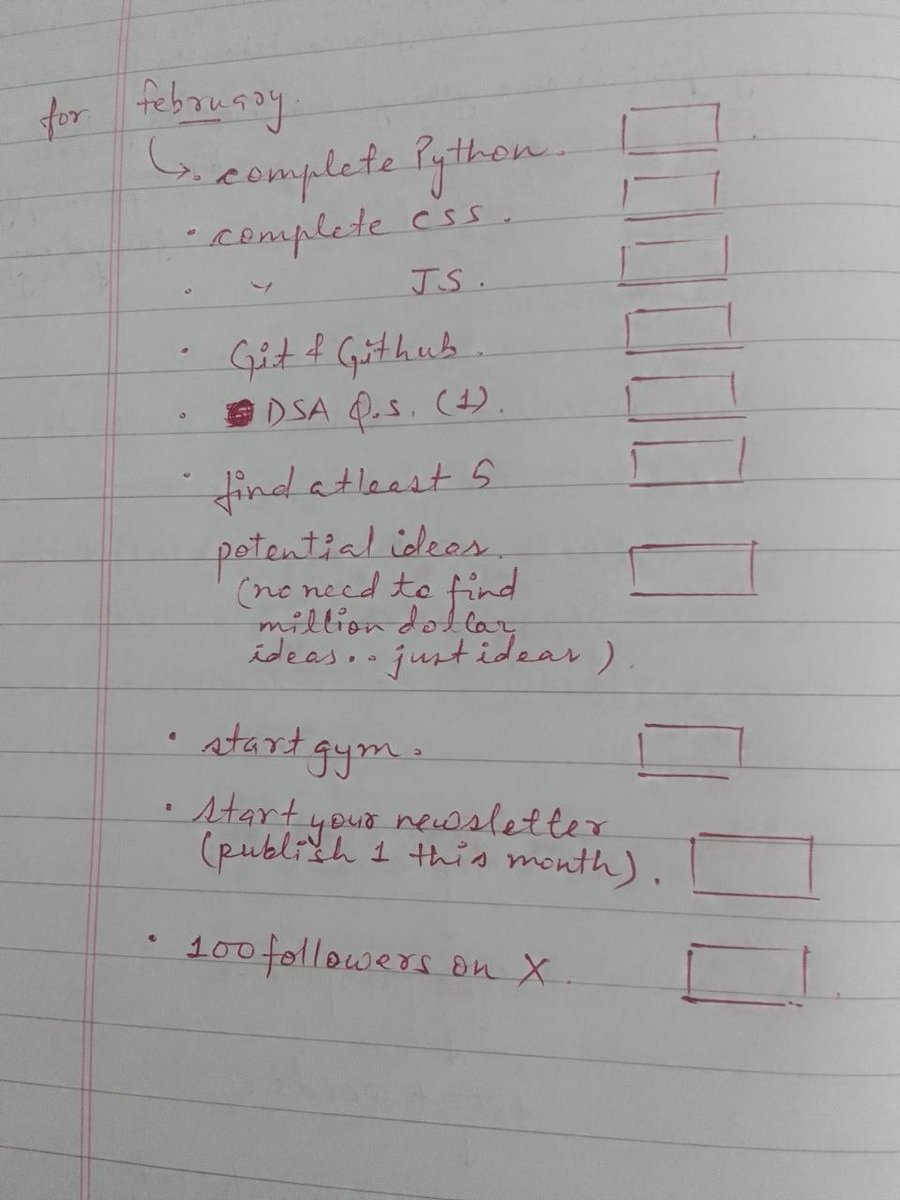 for february.
↳. complete Python.
· complete css.
· " JS.
· Git & Github.
· DSA Q.s. (1).
· find atleast 5
potential ideas.
(no need to find
million dollar
ideas.. just ideas).
· start gym.
· start your newsletter
(publish 1 this month).
· 100 followers on X.